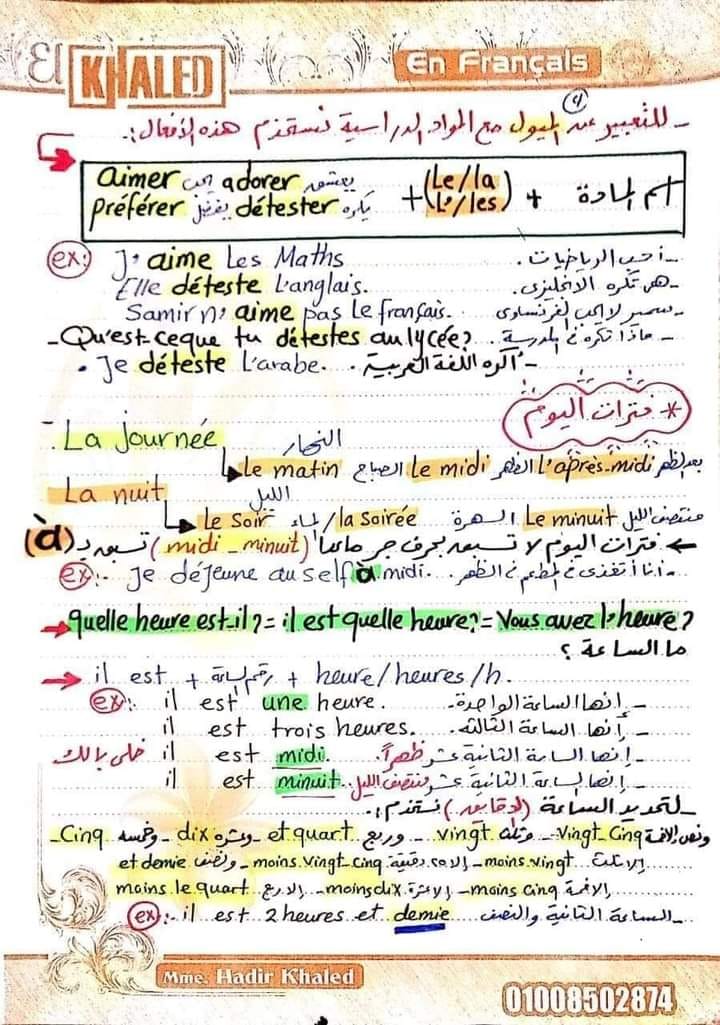 El KHALED En Français
٩
- للتعبير عن الميول مع المواد الدراسية نستخدم هذه الأفعال:.
aimer يحب adorer يعشق
préférer يفضل détester يكره
+ (Le/la L'/les) + اسم المادة
ex: J'aime Les Maths - أحب الرياضيات.
Elle déteste L'anglais. - هى تكره الانجليزى.
Samir n'aime pas Le français. - سمير لا يحب الفرنساوى
- Qu'est-ce que tu détestes au lycée? - ماذا تكره فى المدرسة
• Je déteste L'arabe. - أكره اللغة العربية.
* فترات اليوم
La journée النهار
Le matin الصباح Le midi الظهر L'après-midi بعد الظهر
La nuit الليل
Le soir المساء / la soirée السهرة Le minuit منتصف الليل
← فترات اليوم لا تسبق بحرف جر ماعدا (midi - minuit) تسبق بـ (à)
ex:- Je déjeune au self à midi. - أنا أتغذى فى المطعم فى الظهر.
→ Quelle heure est-il? = il est quelle heure? = Vous avez l'heure?
ما الساعة ؟
→ il est + رقم الساعة + heure/heures/h.
ex:. il est une heure. - إنها الساعة الواحدة.
il est trois heures. - إنها الساعة الثالثة.
خلى بالك il est midi. - إنها الساعة الثانية عشر ظهراً.
il est minuit. - إنها الساعة الثانية عشر منتصف الليل
- لتحديد الساعة (الدقايق) نستخدم:.
- Cinq وخمسة - dix وعشرة - et quart وربع - vingt وتلت - Vingt Cinq ونص إلا خمسة
et demie ونصف - moins vingt cinq إلا ٢٥ دقيقة - moins vingt إلا تلت
moins le quart إلا ربع - moins dix إلا عشرة - moins cinq إلا خمسة
ex:- il est 2 heures et demie - الساعة الثانية والنصف
Mme. Hadir Khaled
01008502874